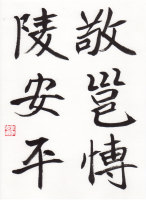 敬邕愽
陵安平